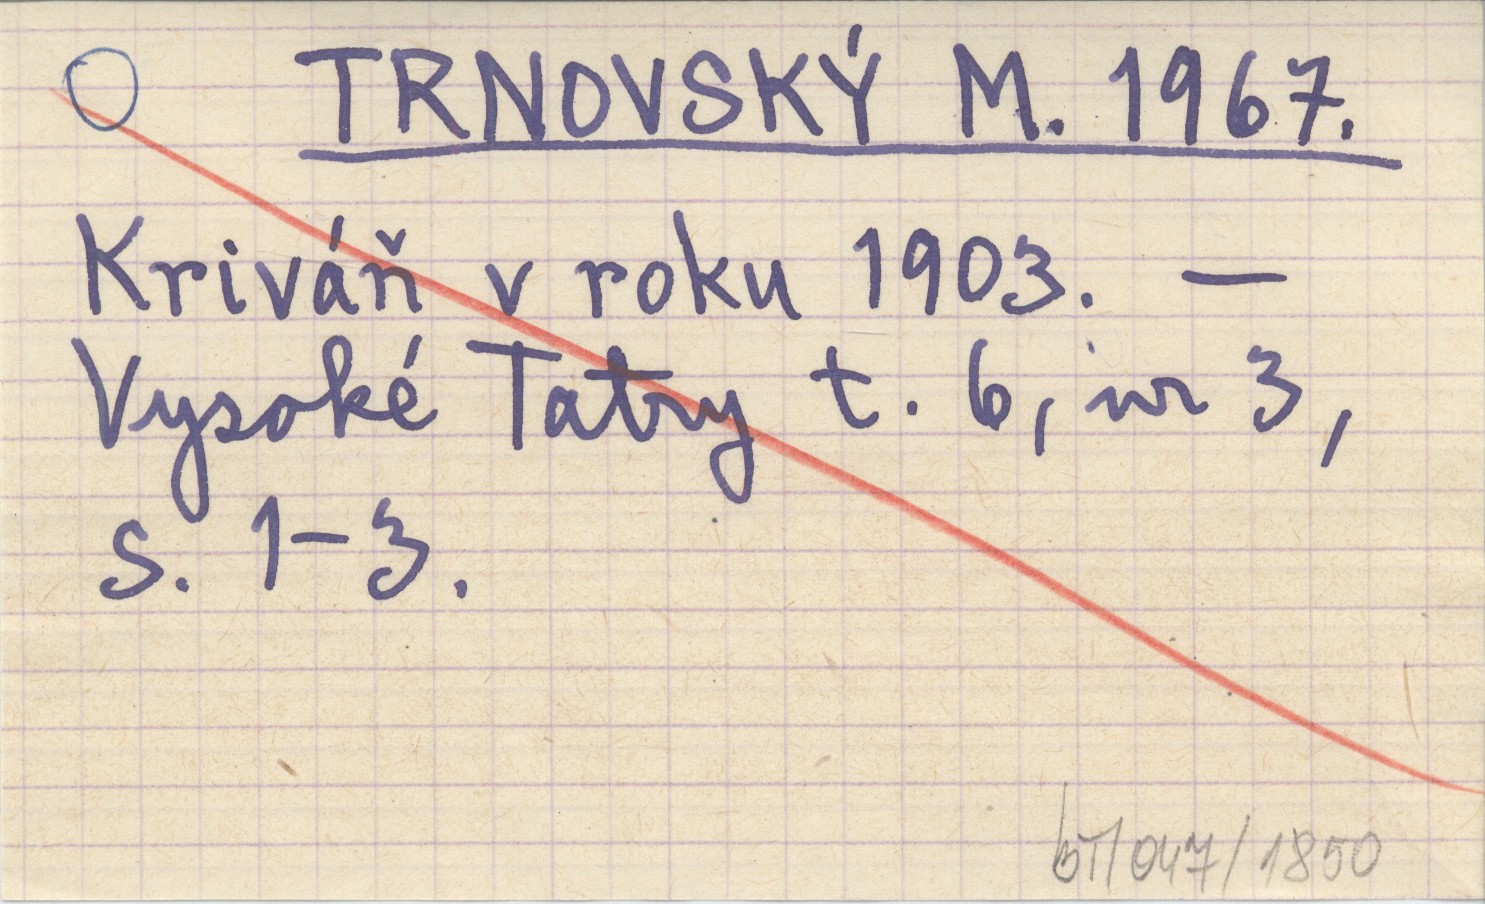 TRNOVSKÝ M. 1967.
Kriváň v roku 1903. —
Vysoké Tatry t. 6, nr 3,
s. 1-3.
bT/047/1850